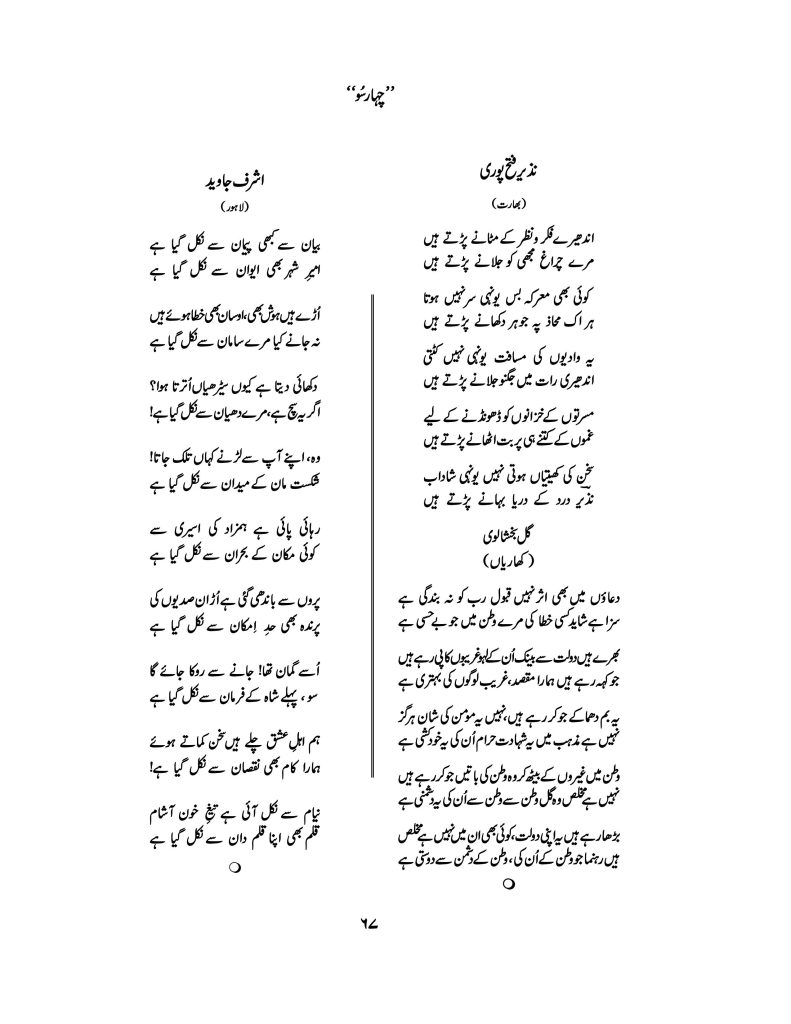 ’’چہارسُو‘‘
نذیر فتح پوری
(بھارت)
اندھیرے فکر و نظر کے مٹانے پڑتے ہیں
مرے چراغ مجھی کو جلانے پڑتے ہیں
کوئی بھی معرکہ بس یونہی سر نہیں ہوتا
ہر اک محاذ پہ جوہر دکھانے پڑتے ہیں
یہ وادیوں کی مسافت یونہی نہیں کٹتی
اندھیری رات میں جگنو جلانے پڑتے ہیں
مسرتوں کے خزانوں کو ڈھونڈنے کے لیے
غموں کے کتنے ہی پربت اٹھانے پڑتے ہیں
سخن کی کھیتیاں ہوتی نہیں یونہی شاداب
نذیر درد کے دریا بہانے پڑتے ہیں
گل بخشالوی
(کھاریاں)
دعاؤں میں بھی اثر نہیں قبول رب کو نہ بندگی ہے
سزا ہے شاید کسی خطا کی مرے وطن میں جو بے حسی ہے
بھرے ہیں دولت سے بینک اُن کے لہو غریبوں کا پی رہے ہیں
جو کہہ رہے ہیں ہمارا مقصد، غریب لوگوں کی بہتری ہے
یہ بم دھماکے جو کر رہے ہیں، نہیں یہ مومن کی شان ہرگز
نہیں ہے مذہب میں یہ شہادت حرام اُن کی یہ خودکشی ہے
وطن میں غیروں کے بیٹھ کر وہ وطن کی باتیں جو کر رہے ہیں
نہیں ہے مخلص وہ گل وطن سے وطن سے اُن کی یہ دشمنی ہے
بڑھا رہے ہیں یہ اپنی دولت، کوئی بھی ان میں نہیں ہے مخلص
ہیں رہنما جو وطن کے اُن کی، وطن کے دشمن سے دوستی ہے
اشرف جاوید
(لاہور)
بیان سے کبھی پیمان سے نکل گیا ہے
امیرِ شہر بھی ایوان سے نکل گیا ہے
اُڑے ہیں ہوش بھی، اوسان بھی خطا ہوئے ہیں
نہ جانے کیا مرے سامان سے نکل گیا ہے
دکھائی دیتا ہے کیوں سیڑھیاں اُترتا ہوا؟
اگر یہ سچ ہے، مرے دھیان سے نکل گیا ہے!
وہ، اپنے آپ سے لڑنے کہاں تلک جاتا!
شکست مان کے میدان سے نکل گیا ہے
رہائی پائی ہے ہمزاد کی اسیری سے
کوئی مکان کے بحران سے نکل گیا ہے
پروں سے باندھی گئی ہے اُڑان صدیوں کی
پرندہ بھی حدِ اِمکان سے نکل گیا ہے
اُسے گمان تھا! جانے سے روکا جائے گا
سو، پہلے شاہ کے فرمان سے نکل گیا ہے
ہم اہلِ عشق چلے ہیں سخن کماتے ہوئے
ہمارا کام بھی نقصان سے نکل گیا ہے!
نیام سے نکل آئی ہے تیغِ خون آشام
قلم بھی اپنا قلم دان سے نکل گیا ہے
۶۷